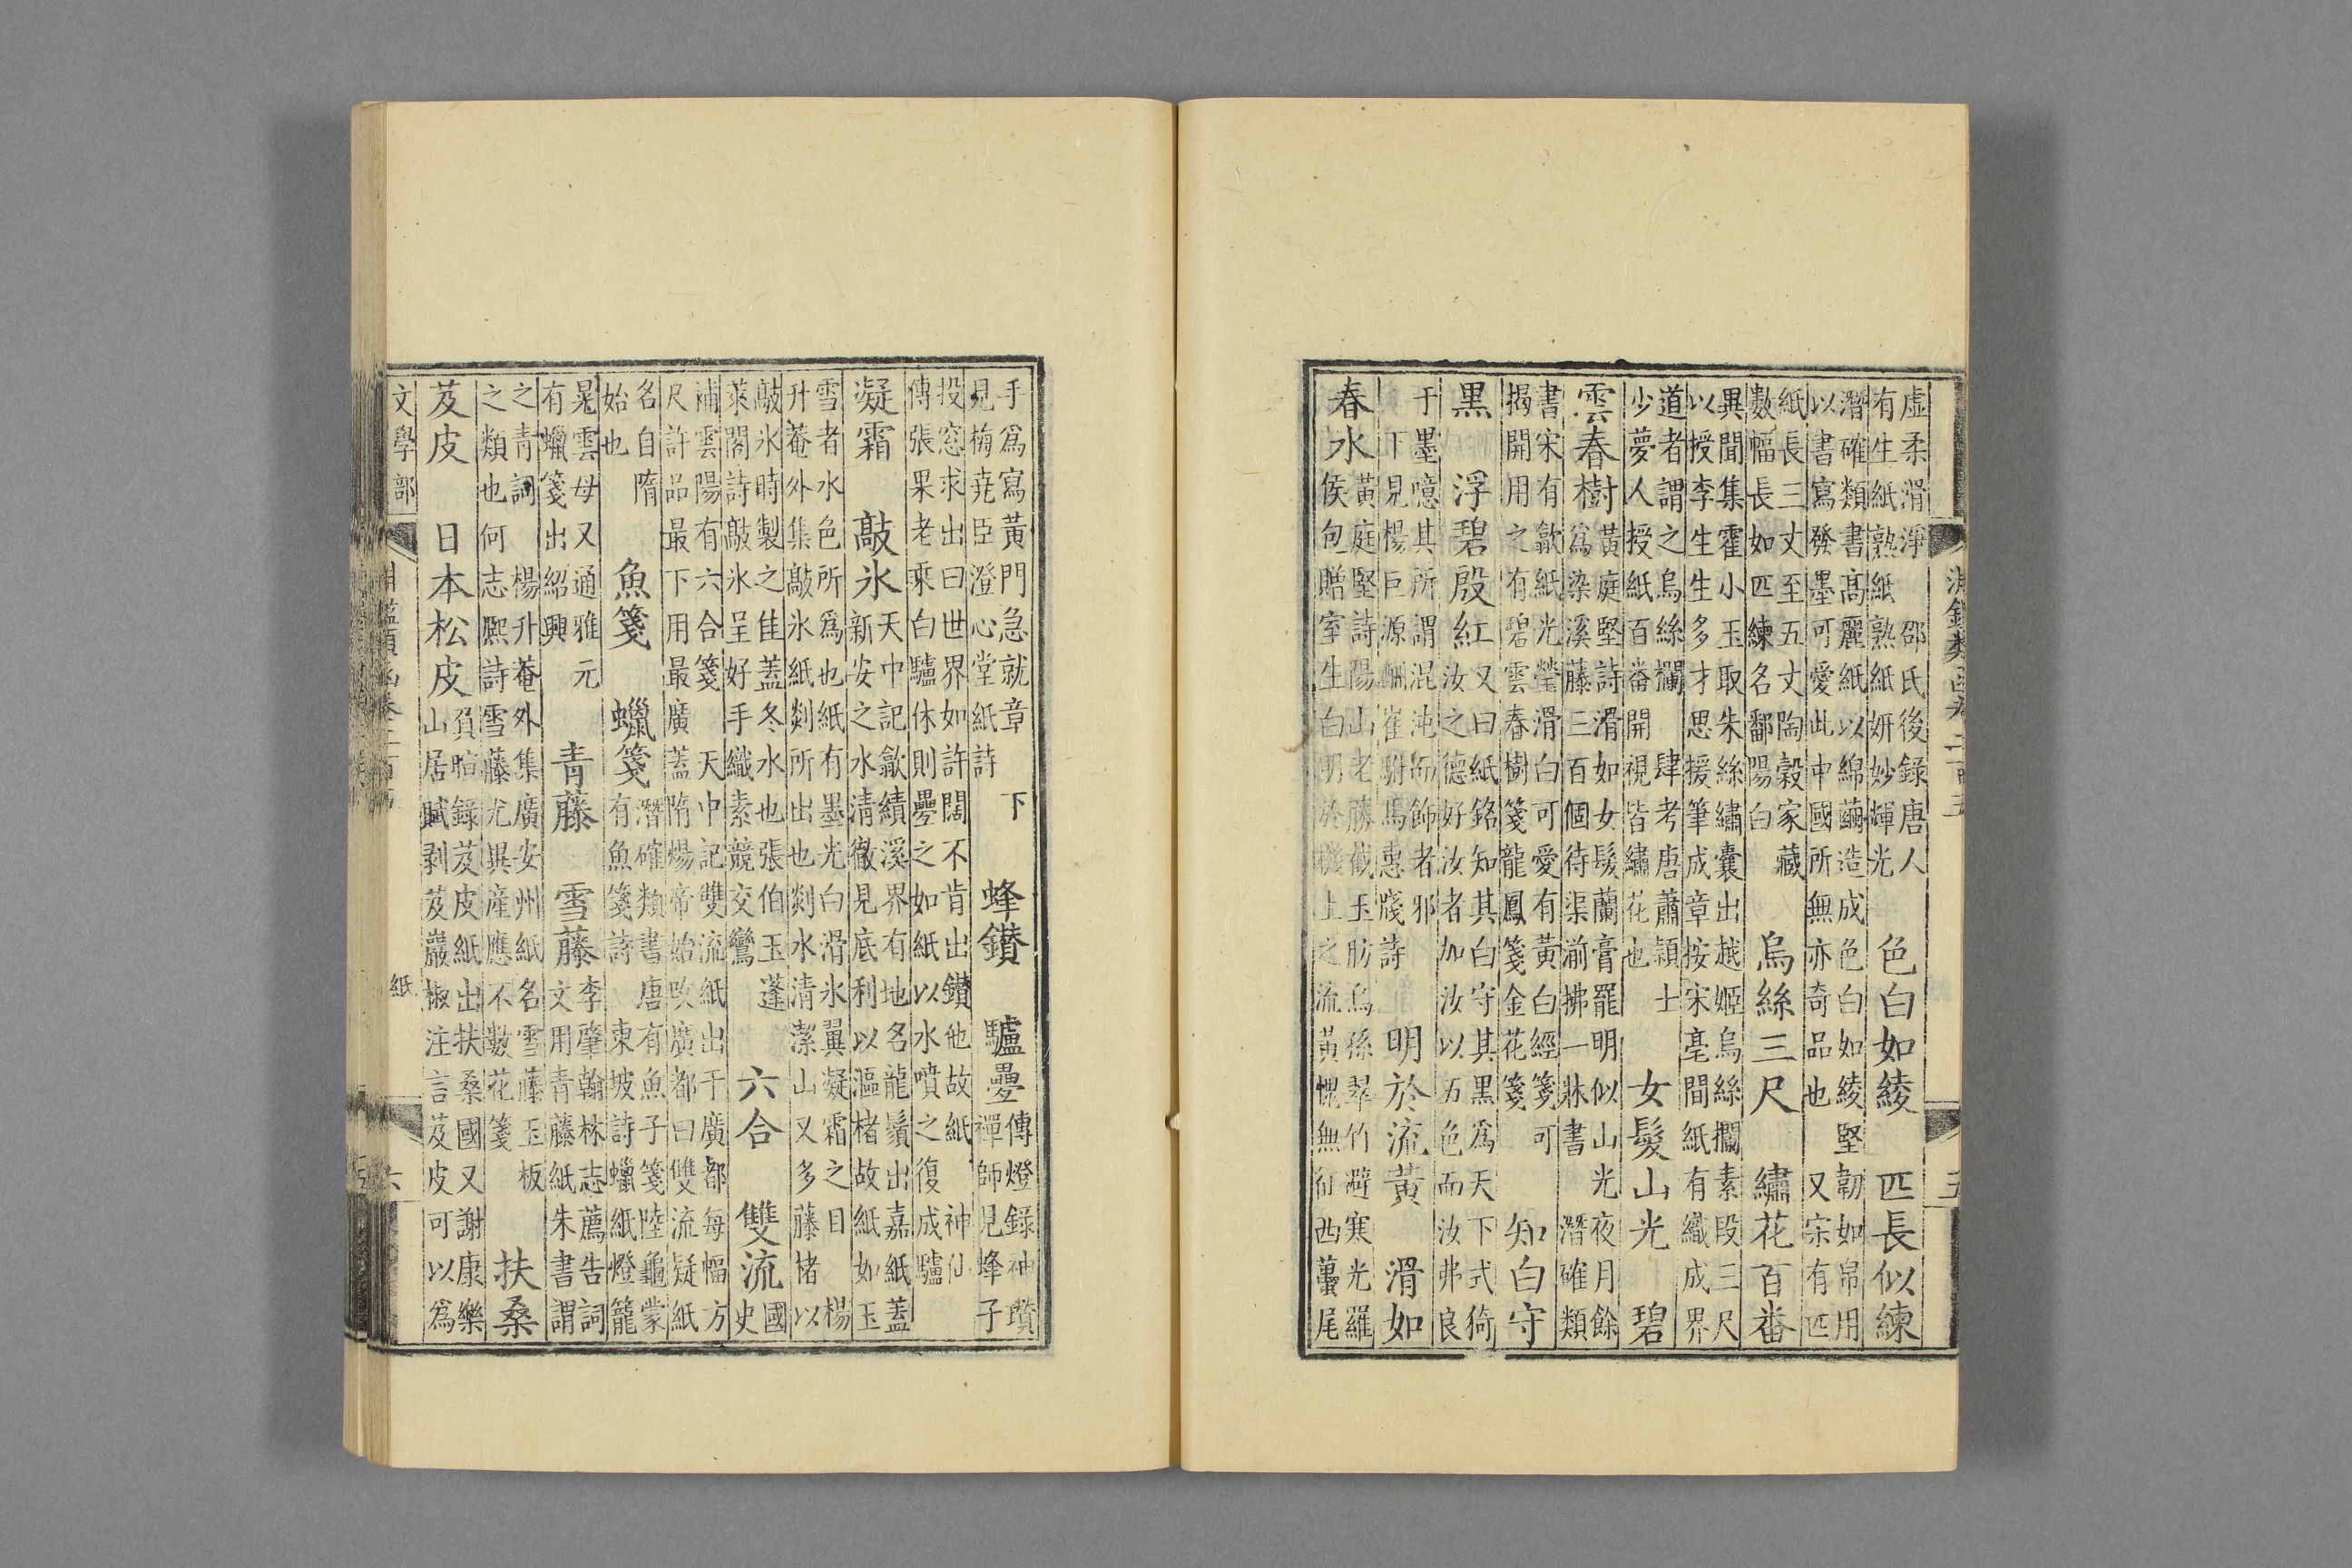 淵鑑類函卷二百五 五
虛柔滑淨 邵氏後錄唐人
有生紙熟紙熟紙妍妙輝光
色白如綾 匹長似練
潛確類書高麗紙以綿繭造成色白如綾堅韌如帛用
以書寫發墨可愛此中國所無亦奇品也 又宋有匹
紙長三丈至五丈陶穀家藏
數幅長如匹練名鄱陽白
烏絲三尺 繡花百番
異聞集霍小玉取朱絲繡囊出越姬烏絲攔素段三尺
以授李生生多才思援筆成章按宋亳間紙有織成界
道者謂之烏絲攔 肆考唐蕭穎士
少夢人授紙百番開視皆繡花也
女髮山光 碧
雲春樹
黃庭堅詩滑如女髮蘭膏罷明似山光夜月餘
為染溪藤三百個待渠湔拂一牀書 潛確類
書宋有歙紙光瑩滑白可愛有黃白經箋可
揭開用之有碧雲春樹箋龍鳳箋金花箋
知白守
黑 浮碧殷紅
又曰紙銘知其白守其黑為天下式猗
汝之德好汝者加汝以五色而汝弗良
于墨噫其所謂混沌而飾者邪
下見楊巨源酬崔駙馬惠牋詩
明於流黃 滑如
春水
黃庭堅詩陽山老藤截玉肪烏孫翠竹避寒光羅
侯包贈室生白明於機上之流黃愧無征西蠆尾
手為寫黃門急就章 下
見梅堯臣澄心堂紙詩
蜂鑽 驢疊
傳燈錄神瓚
禪師見蜂子
投窓求出曰世界如許闊不肯出鑽他故紙 神仙
傳張果老乘白驢休則疊之如紙以水噴之復成驢
凝霜 敲氷
天中記歙績溪界有地名龍鬚出嘉紙蓋
新安之水清徹見底利以漚楮故紙如玉
雪者水色所為也紙有墨光白滑氷翼凝霜之目 楊
升菴外集敲氷紙剡所出也剡水清潔山又多藤楮以
敲氷時製之佳蓋冬水也張伯玉蓬
萊閣詩敲氷呈好手織素競交鸞
六合 雙流
國
史
補雲陽有六合箋 天中記雙流紙出于廣都每幅方
尺許品最下用最廣蓋隋煬帝始改廣都曰雙流疑紙
名自隋
始也
魚箋 蠟箋
潛確類書唐有魚子箋陸龜蒙
有魚箋詩 東坡詩蠟紙燈籠
晃雲母又通雅元
有蠟箋出紹興
青藤 雪藤
李肇翰林志薦告詞
文用青藤紙朱書謂
之青詞 楊升菴外集廣安州紙名雪藤玉板
之類也何志熙詩雪藤尤異產應不數花箋
扶桑
芨皮 日本松皮
負暄錄芨皮紙出扶桑國又謝康樂
山居賦剥芨巖椒注言芨皮可以為
文學部 紙 六